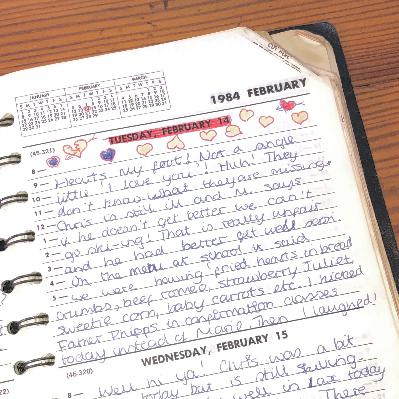 JANUARY FEBRUARY MARCH
1984 FEBRUARY
TUESDAY, FEBRUARY 14
(45-321)
8 —
9 — Hearts my foot! Not a single
10 — little 'I love you'! Huh! They
11 — don't know what they are missing.
12 — Chris is still ill and M. says
1 — if he doesn't get better we can't
2 — go ski-ing! That is really unfair
3 — and he had better get well soon.
4 — On the menu at school it said
5 — we were having fried hearts in bread
crumbs, beef romeo, strawberry Juliet,
sweetie corn, baby carrots etc. I
Father Phipps in confirmation classes
today instead of Marie Then I laughed!
WEDNESDAY, FEBRUARY 15
(46-320)
8 — Well hi ya! Chris was a bit
today but is still
well in today
There